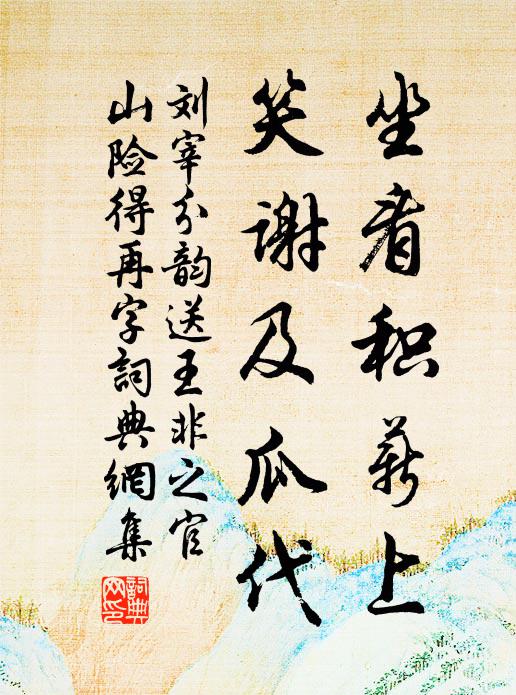 坐看积薪上
笑谢及瓜代
刘宰分韵送王非之官
山险得再字詞典網集
詞典
网印